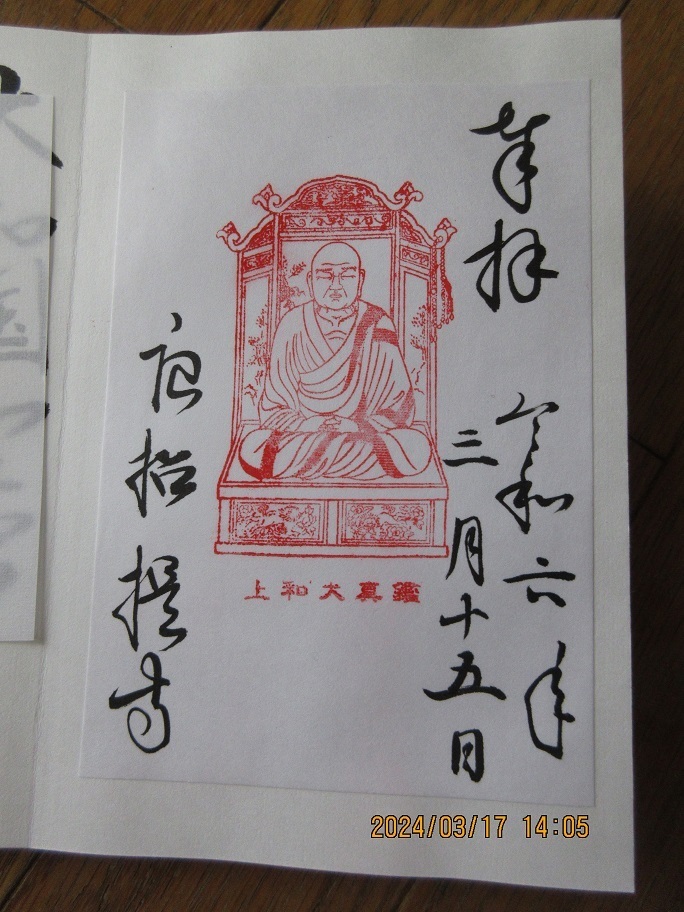 奉拝
令和六年
三月十五日
鑑真大和上
唐招提寺
2024/03/17 14:05